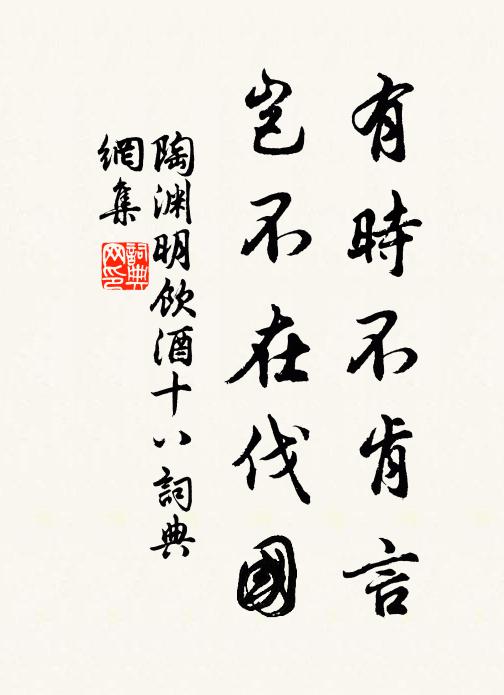 有時不肯言
豈不在伐國
陶淵明飲酒十八詞典
網集
詞典
网印